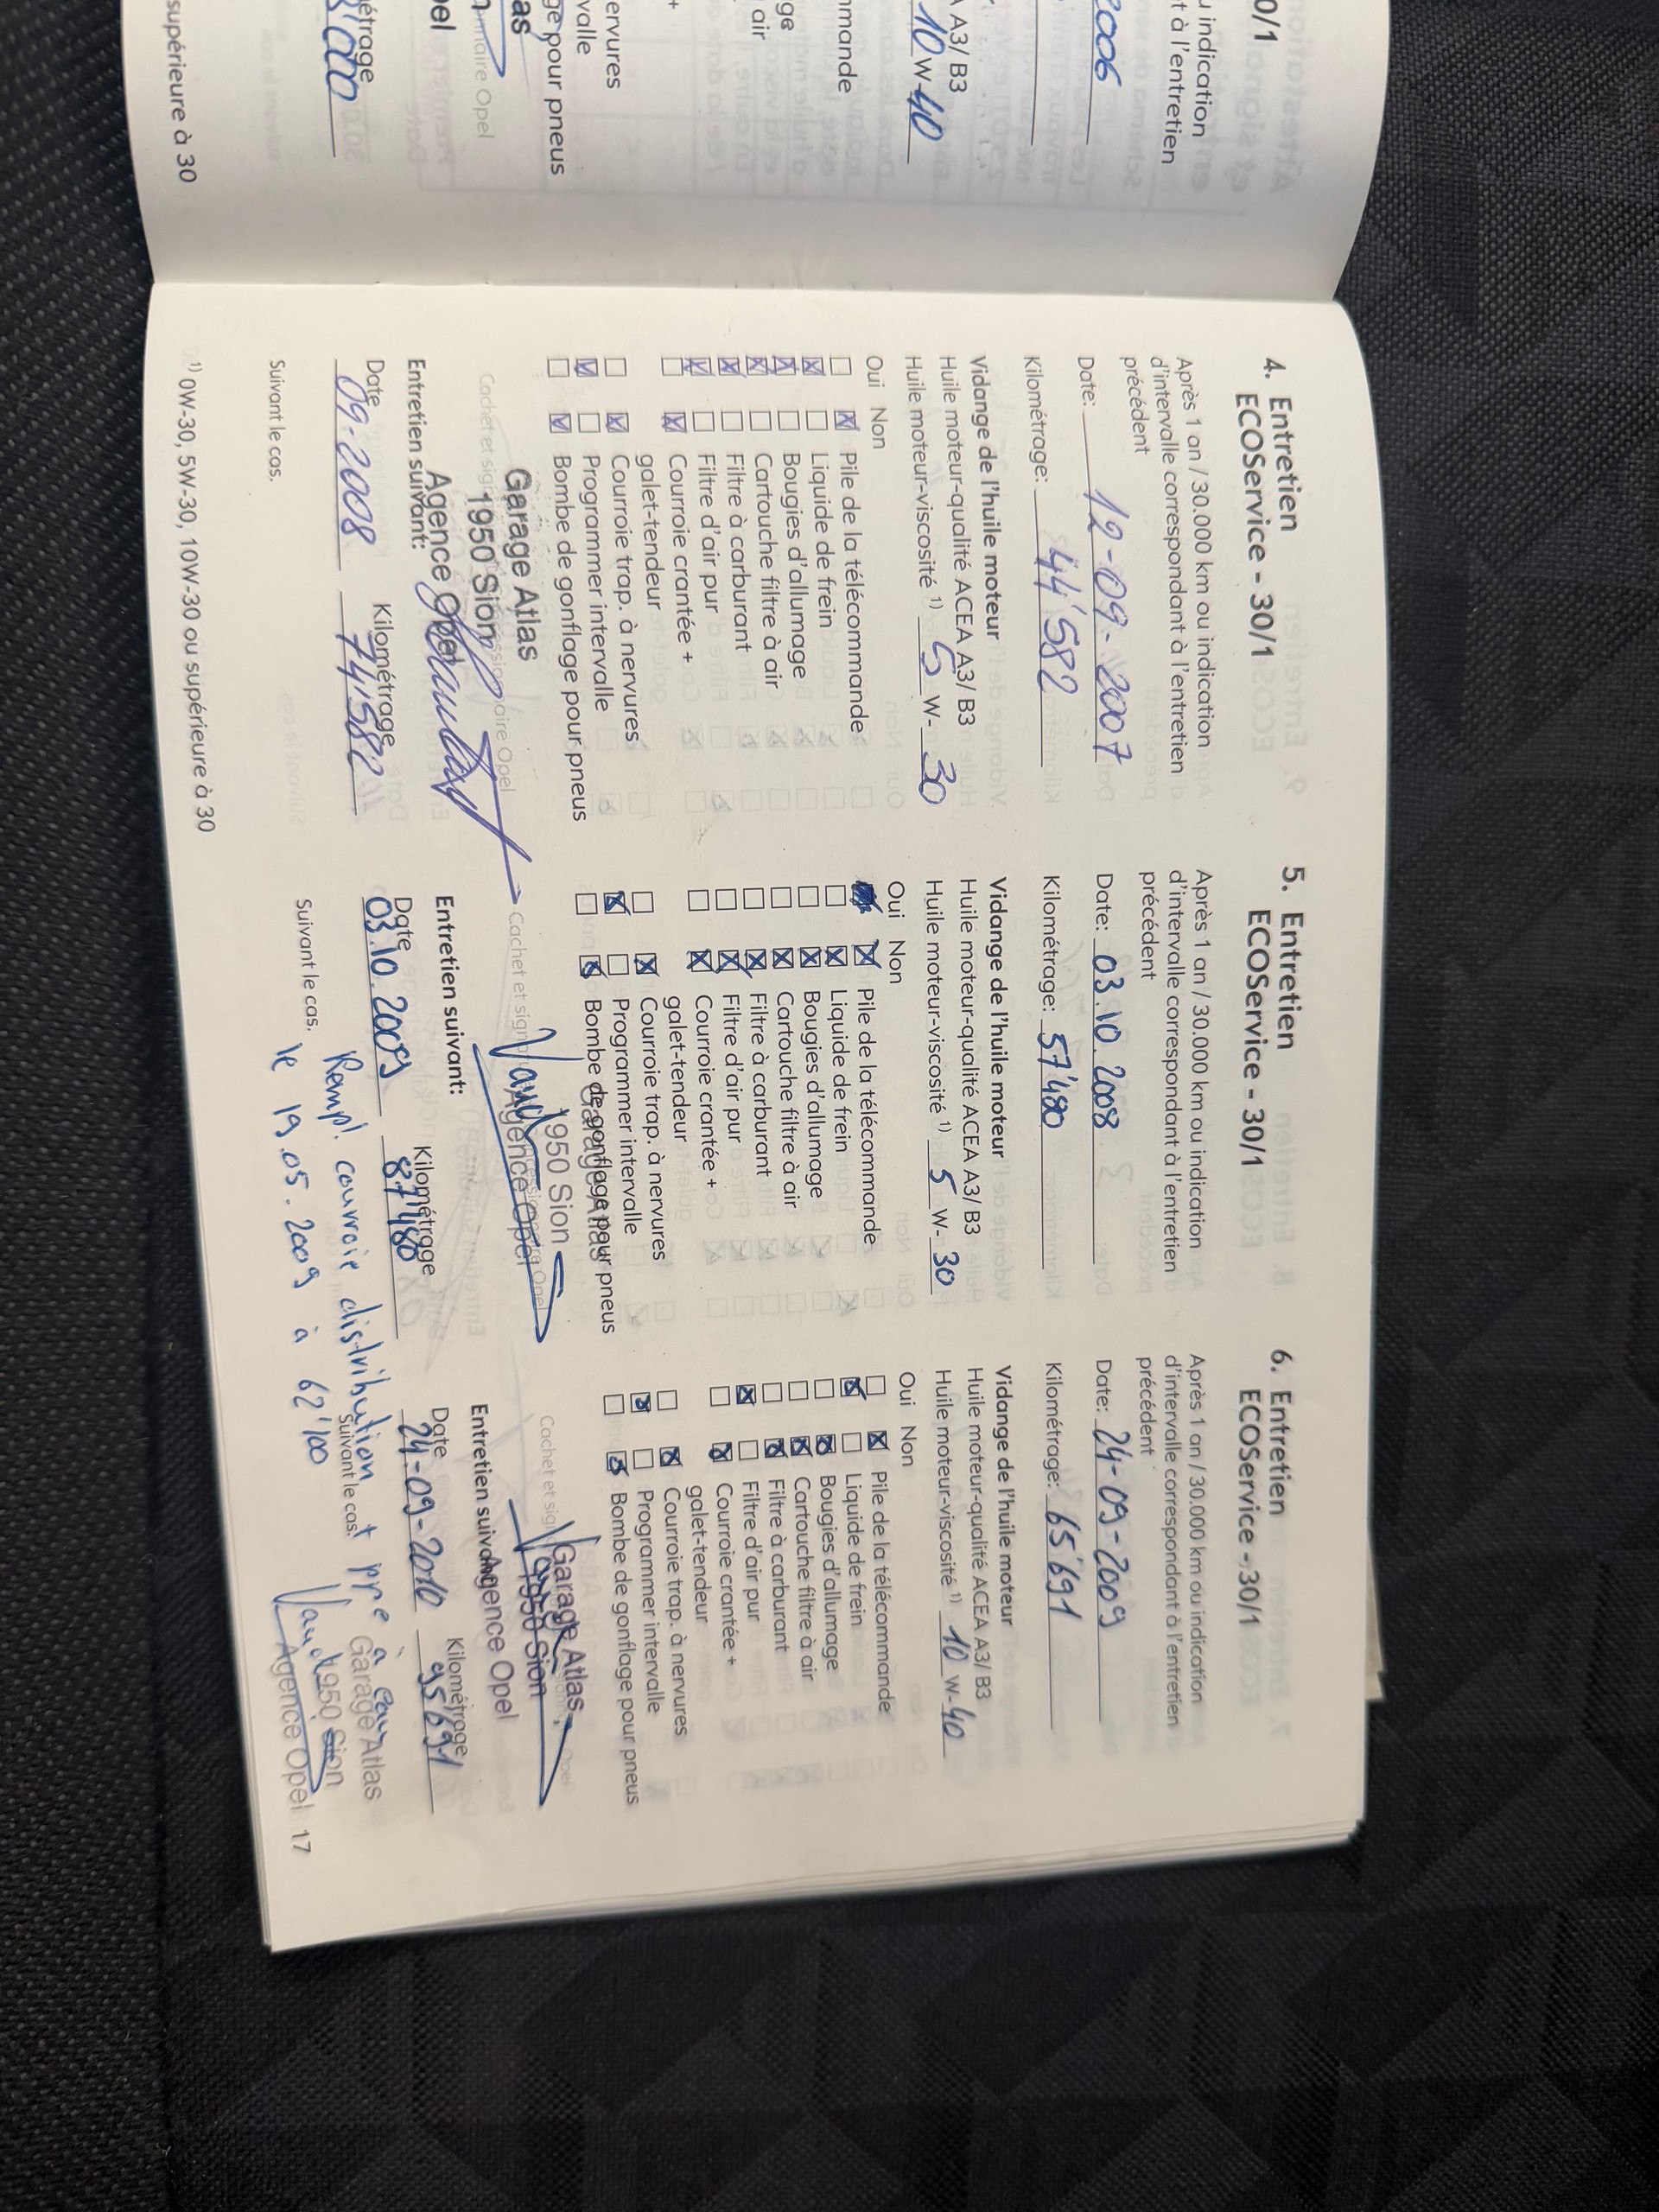 0/1
u indication
t à l'entretien
2006
A A3/B3
10 W-40
mmande
ge
air
+
ervures
valle
ge pour pneus
as
nnaire Opel
pel
étrage
000
supérieure à 30
4. Entretien
ECOService - 30/1
Après 1 an / 30.000 km ou indication
d'intervalle correspondant à l'entretien
précédent
Date: 12-09-2007
Kilométrage: 44'582
Vidange de l'huile moteur
Huile moteur-qualité ACEA A3/B3
Huile moteur-viscosité 1) 5 W- 30
Oui Non
☐ ☒ Pile de la télécommande
☒ ☐ Liquide de frein
☒ ☐ Bougies d'allumage
☒ ☐ Cartouche filtre à air
☒ ☐ Filtre à carburant
☒ ☐ Filtre d'air pur
☐ ☒ Courroie crantée +
galet-tendeur
☐ ☒ Courroie trap. à nervures
☒ ☐ Programmer intervalle
☐ ☒ Bombe de gonflage pour pneus
Garage Atlas
1950 Sion
Agence Opel
Entretien suivant:
Date Kilométrage
09-2008 74'582
Suivant le cas.
1) 0W-30, 5W-30, 10W-30 ou supérieure à 30
5. Entretien
ECOService - 30/1
Après 1 an / 30.000 km ou indication
d'intervalle correspondant à l'entretien
précédent
Date: 03.10.2008
Kilométrage: 57'480
Vidange de l'huile moteur
Huile moteur-qualité ACEA A3/B3
Huile moteur-viscosité 1) 5 W- 30
Oui Non
☒ Pile de la télécommande
☐ ☒ Liquide de frein
☐ ☒ Bougies d'allumage
☐ ☒ Cartouche filtre à air
☐ ☒ Filtre à carburant
☐ ☒ Filtre d'air pur
☐ ☒ Courroie crantée +
galet-tendeur
☐ ☒ Courroie trap. à nervures
☒ ☐ Programmer intervalle
☐ ☒ Bombe de gonflage pour pneus
Garage Atlas
1950 Sion
Agence Opel
Entretien suivant:
Date Kilométrage
03.10.2009 87'480
Suivant le cas.
6. Entretien
ECOService - 30/1
Après 1 an / 30.000 km ou indication
d'intervalle correspondant à l'entretien
précédent
Date: 24-09-2009
Kilométrage: 65'691
Vidange de l'huile moteur
Huile moteur-qualité ACEA A3/B3
Huile moteur-viscosité 1) 10 W-40
Oui Non
☐ ☒ Pile de la télécommande
☒ ☐ Liquide de frein
☐ ☒ Bougies d'allumage
☐ ☒ Cartouche filtre à air
☐ ☒ Filtre à carburant
☒ ☐ Filtre d'air pur
☐ ☒ Courroie crantée +
galet-tendeur
☐ ☒ Courroie trap. à nervures
☒ ☐ Programmer intervalle
☐ ☒ Bombe de gonflage pour pneus
Garage Atlas
1950 Sion
Agence Opel
Entretien suivant:
Date Kilométrage
24-09-2010 95'691
Suivant le cas.
Rempl. courroie distribution + ppe à eau
le 19.05.2009 à 62'100
Garage Atlas
1950 Sion
Agence Opel
17